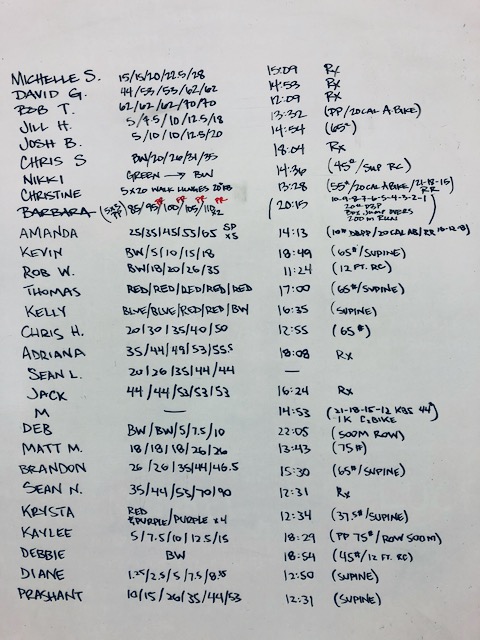 MICHELLE S. 15/15/20/22.5/28 15:09 Rx
DAVID G. 44/53/53/62/62 14:53 Rx
BOB T. 62/62/62/70/70 12:09 Rx
JILL H. 5/7.5/10/12.5/18 13:32 (PP/20 CAL A.BIKE)
JOSH B. 5/10/10/12.5/20 14:54 (65#)
CHRIS S BW/20/26/31/35 18:04 Rx
NIKKI GREEN → BW 14:36 (45#/SUP RC)
CHRISTINE 5x20 WALK LUNGES 20#KB 13:28 (55#/20CAL ABIKE/21-18-15) RR
BARBARA (5x3) PP 85/95/100/105/110 PR PR PR PR (20:15 10-9-8-7-6-5-4-3-2-1
BOX JUMP OVERS
200 M RUN)
AMANDA 25/35/45/55/65 SP x5 14:13
KEVIN BW/5/10/15/18 18:49 (65#/SUPINE)
ROB W. BW/18/20/26/35 11:24 (12 FT. RC)
THOMAS RED/RED/RED/RED/RED 17:00 (65#/SUPINE)
KELLY BLUE/BLUE/RED/RED/BW 16:35 (SUPINE)
CHRIS H. 20/30/35/40/50 12:55 (65#)
ADRIANA 35/44/49/53/55.5 18:08 Rx
SEAN L. 20/26/35/44/44 —
JACK 44/44/53/53/53 16:24 Rx
M — 14:53 (21-18-15-12 KBS 44#
1K C2BIKE)
DEB BW/BW/5/7.5/10 22:05 (500M ROW)
MATT M. 18/18/18/26/26 13:43 (75#)
BRANDON 26/26/35/44/46.5 15:30 (65#/SUPINE)
SEAN N. 35/44/53/70/90 12:31 Rx
KRYSTA RED PURPLE/PURPLE x4 12:34 (37.5#/SUPINE)
KAYLEE 5/7.5/10/12.5/15 18:29 (PP 75#/ROW 500M)
DEBBIE BW 18:54 (45#/12 FT. RC)
DIANE 1.25/2.5/5/7.5/8.75 12:50 (SUPINE)
PRASHANT 10/15/26/35/44/53 12:31 (SUPINE)